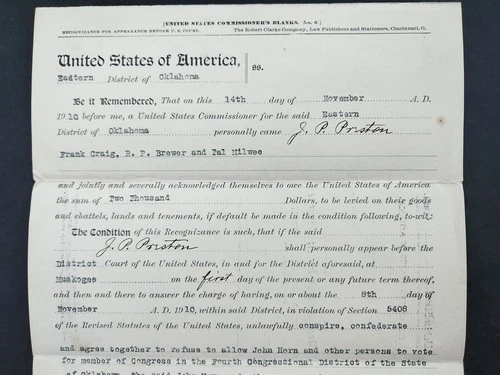 [UNITED STATES COMMISSIONER'S BLANKS. No. 6.]
RECOGNIZANCE FOR APPEARANCE BEFORE U. S. COURT. The Robert Clarke Company, Law Publishers and Stationers, Cincinnati, O.
United States of America, } ss.
Eastern District of Oklahoma
Be it Remembered, That on this 14th day of November A. D.
1910 before me, a United States Commissioner for the said Eastern
District of Oklahoma personally came J. P. Preston
Frank Craig, R. P. Brewer and Pal Milwee
and jointly and severally acknowledged themselves to owe the United States of America
the sum of Two Thousand Dollars, to be levied on their goods
and chattels, lands and tenements, if default be made in the condition following, to-wit:
The Condition of this Recognizance is such, that if the said
J. P. Preston shall personally appear before the
District Court of the United States, in and for the District aforesaid, at
Muskogee on the first day of the present or any future term thereof,
and then and there to answer the charge of having, on or about the 8th day of
November A. D. 1910, within said District, in violation of Section 5406
of the Revised Statutes of the United States, unlawfully conspire, confederate
and agree together to refuse to allow John Horn and other persons to vote
for member of Congress in the Fourth Congressional District of the State
of Oklahoma, the said John Horn